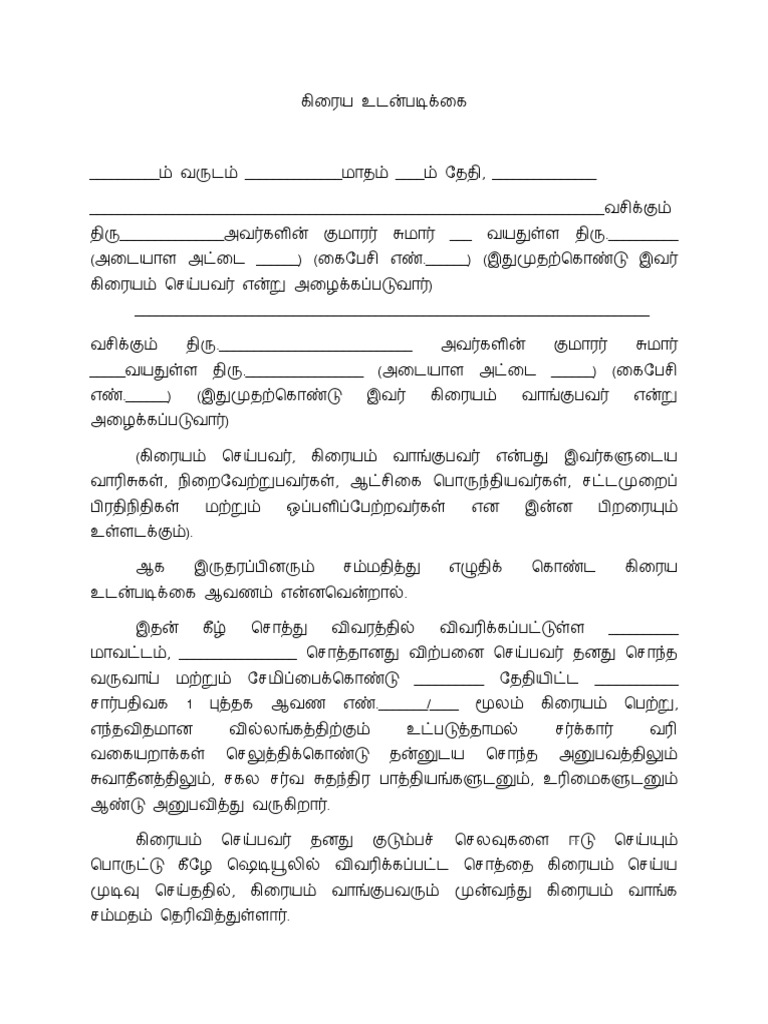 கிரைய உடன்படிக்கை
__________ம் வருடம் ______________மாதம் ____ம் தேதி, _______________
__________________________________________________________________________வசிக்கும்
திரு_______________அவர்களின் குமாரர் சுமார் ___ வயதுள்ள திரு.__________
(அடையாள அட்டை ______) (கைபேசி எண்.______) (இதுமுதற்கொண்டு இவர்
கிரையம் செய்பவர் என்று அழைக்கப்படுவார்)
__________________________________________________________________________
வசிக்கும் திரு.____________________________ அவர்களின் குமாரர் சுமார்
_____வயதுள்ள திரு._________________ (அடையாள அட்டை ______) (கைபேசி
எண்.______) (இதுமுதற்கொண்டு இவர் கிரையம் வாங்குபவர் என்று
அழைக்கப்படுவார்)
(கிரையம் செய்பவர், கிரையம் வாங்குபவர் என்பது இவர்களுடைய
வாரிசுகள், நிறைவேற்றுபவர்கள், ஆட்சிகை பொருந்தியவர்கள், சட்டமுறைப்
பிரதிநிதிகள் மற்றும் ஒப்பளிப்பேற்றவர்கள் என இன்ன பிறரையும்
உள்ளடக்கும்).
ஆக இருதரப்பினரும் சம்மதித்து எழுதிக் கொண்ட கிரைய
உடன்படிக்கை ஆவணம் என்னவென்றால்.
இதன் கீழ் சொத்து விவரத்தில் விவரிக்கப்பட்டுள்ள __________
மாவட்டம், _________________ சொத்தானது விற்பனை செய்பவர் தனது சொந்த
வருவாய் மற்றும் சேமிப்பைக்கொண்டு __________ தேதியிட்ட ____________
சார்பதிவக 1 புத்தக ஆவண எண்._______/____ மூலம் கிரையம் பெற்று,
எந்தவிதமான வில்லங்கத்திற்கும் உட்படுத்தாமல் சர்க்கார் வரி
வகையறாக்கள் செலுத்திக்கொண்டு தன்னுடய சொந்த அனுபவத்திலும்
சுவாதீனத்திலும், சகல சர்வ சுதந்திர பாத்தியங்களுடனும், உரிமைகளுடனும்
ஆண்டு அனுபவித்து வருகிறார்.
கிரையம் செய்பவர் தனது குடும்பச் செலவுகளை ஈடு செய்யும்
பொருட்டு கீழே ஷெடியூலில் விவரிக்கப்பட்ட சொத்தை கிரையம் செய்ய
முடிவு செய்ததில், கிரையம் வாங்குபவரும் முன்வந்து கிரையம் வாங்க
சம்மதம் தெரிவித்துள்ளார்.